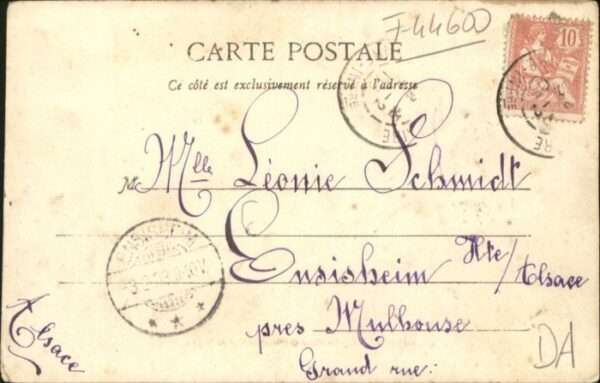 F44600
10
CARTE POSTALE
Ce côté est exclusivement réservé à l'adresse
M
Mlle Léonie Schmidt
Ensisheim Hte/Alsace
pres Mulhouse
Grand rue:
Alsace
ENSISHEIM
DA